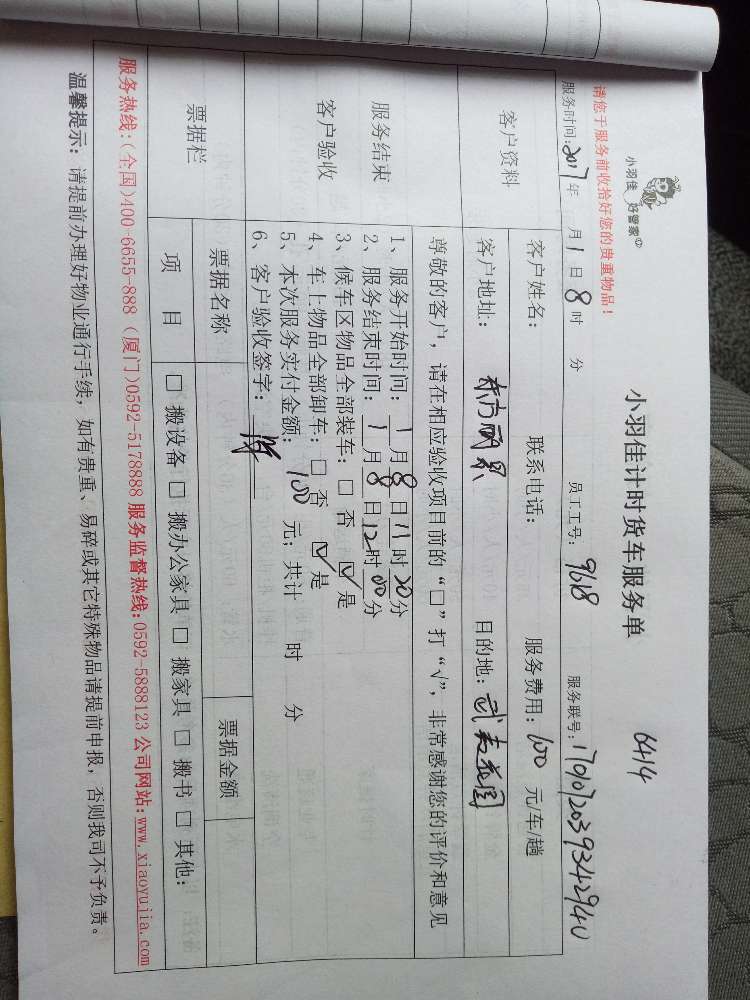 小羽佳 好管家
小羽佳计时货车服务单
6414
请您于服务前收拾好您的贵重物品!
服务时间:2017年 月1日8时 分 员工工号: 9618 服务联号:
客户资料
客户姓名: 联系电话: 服务费用: 100 元/车/趟
客户地址: 东方 目的地: 武夷花园
服务结束
客户验收
尊敬的客户, 请在相应验收项目前的“□”打“√”, 非常感谢您的评价和意见
1、服务开始时间: 1月8日11时20分
2、服务结束时间: 1月8日12时00分
3、候车区物品全部装车: □ 否 ☑ 是
4、车上物品全部卸车: □ 否 ☑ 是
5、本次服务实付金额: 100 元; 共计 时 分
6、客户验收签字:
票据栏
票据名称 票据金额
项 目 □ 搬设备 □ 搬办公家具 □ 搬家具 □ 搬书 □ 其他:
服务热线:(全国)400-6655-888 (厦门)0592-5178888 服务监督热线:0592-5888123 公司网站:www.xiaoyujia.com
温馨提示: 请提前办理好物业通行手续, 如有贵重、易碎或其它特殊物品请提前申报, 否则我司不予负责。